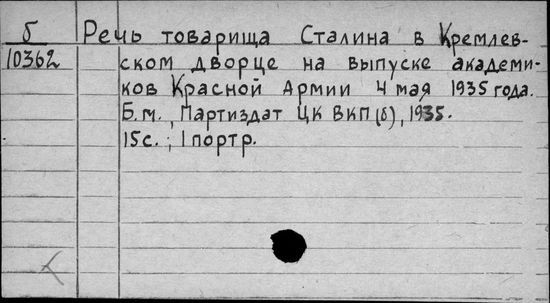 б
10362
Речь товарища Сталина в Кремлев-
ском дворце на выпуске академи-
ков Красной Армии 4 мая 1935 года.
Б.м., Партиздат ЦК ВКП(б), 1935.
15с.; 1 портр.